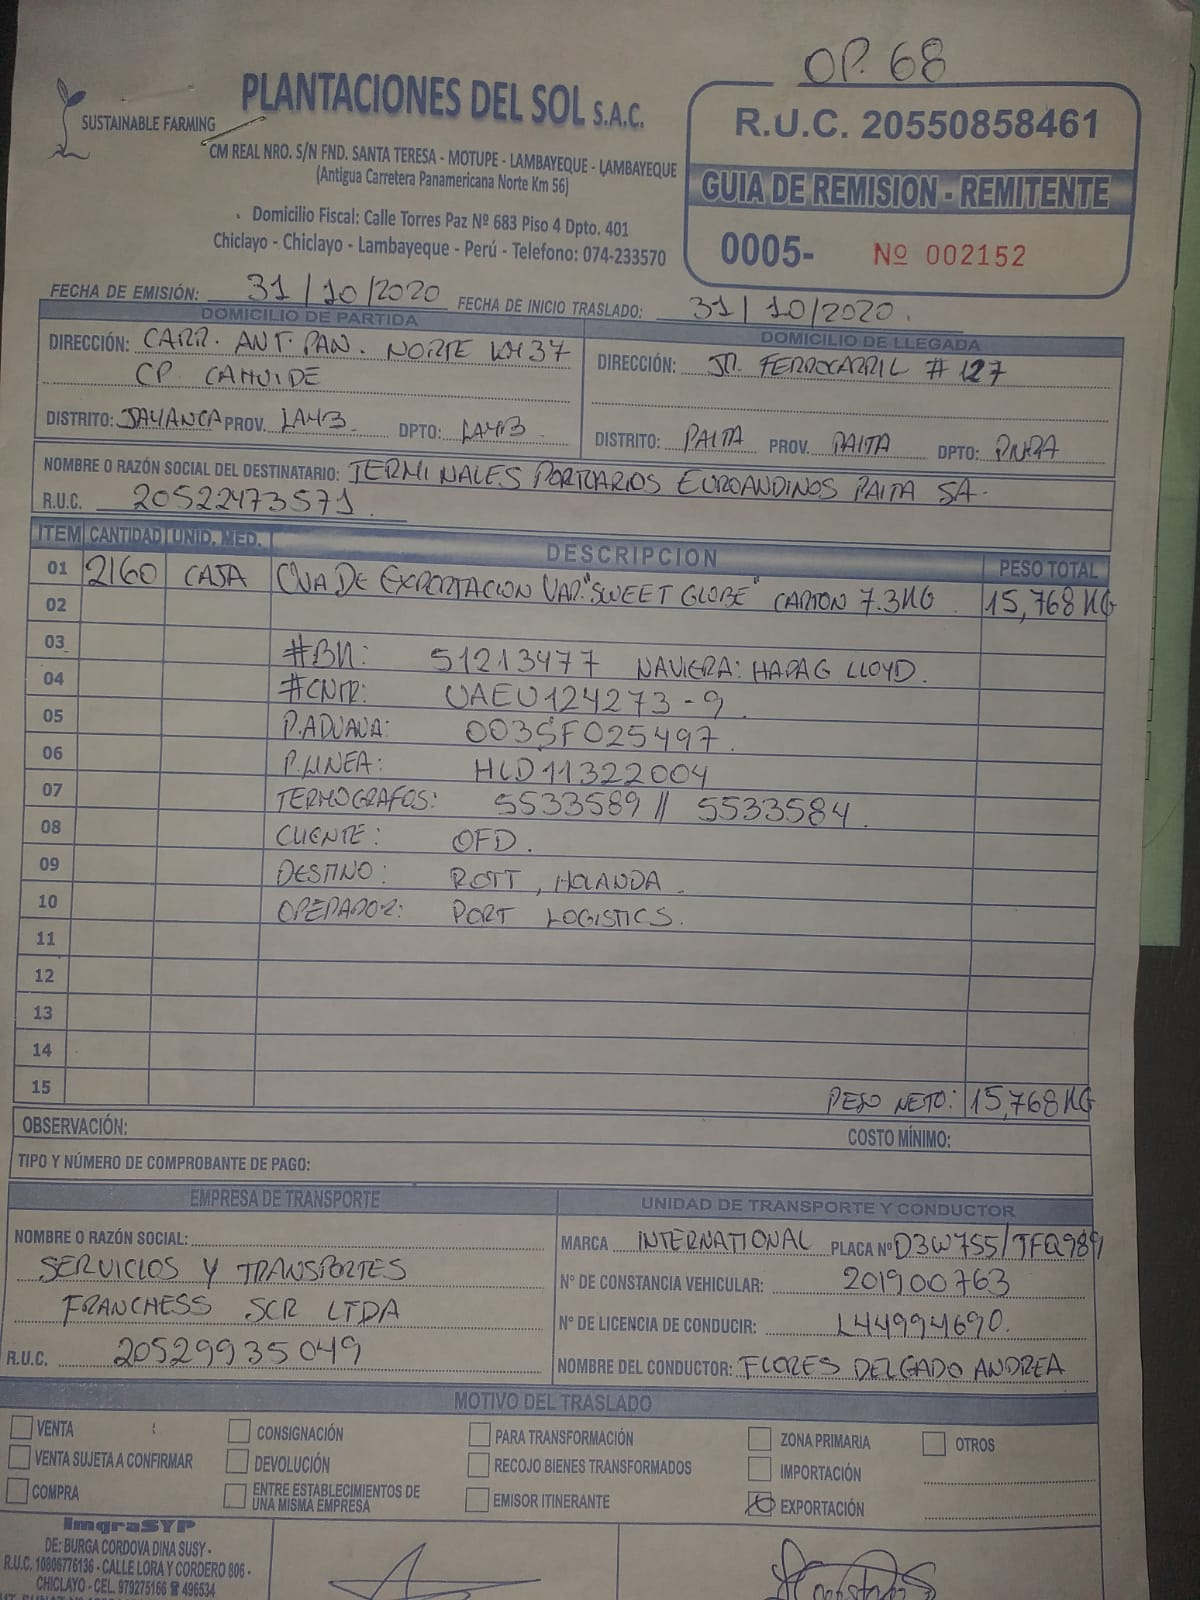 OP. 68
SUSTAINABLE FARMING
PLANTACIONES DEL SOL S.A.C.
CM REAL NRO. S/N FND. SANTA TERESA - MOTUPE - LAMBAYEQUE - LAMBAYEQUE
(Antigua Carretera Panamericana Norte Km 56)
Domicilio Fiscal: Calle Torres Paz Nº 683 Piso 4 Dpto. 401
Chiclayo - Chiclayo - Lambayeque - Perú - Telefono: 074-233570
R.U.C. 20550858461
GUIA DE REMISION - REMITENTE
0005- Nº 002152
FECHA DE EMISIÓN: 31/10/2020 FECHA DE INICIO TRASLADO: 31/10/2020.
DOMICILIO DE PARTIDA
DIRECCIÓN: CARR. ANT. PAN. NORTE KM 37
CP. CAHUIDE
DISTRITO: JAYANCA PROV. LAMB. DPTO: LAMB.
DOMICILIO DE LLEGADA
DIRECCIÓN: JR. FERROCARRIL # 127
DISTRITO: PAITA PROV. PAITA DPTO:
NOMBRE O RAZÓN SOCIAL DEL DESTINATARIO: TERMINALES PORTUARIOS EUROANDINOS PAITA SA.
R.U.C. 20522473571.
ITEM CANTIDAD UNID. MED. DESCRIPCION PESO TOTAL
01 2160 CAJA UVA DE EXPORTACION VAR. "SWEET GLOBE" CARTON 7.3KG. 15,768 KG
02
03 #BK: 51213477 NAVIERA: HAPAG LLOYD.
04 #CNTR: UAEU124273-9.
05 P.ADUANA: 003SF025497.
06 P.LINEA: HLD11322004
07 TERMOGRAFOS: 5533589 // 5533584.
08 CLIENTE: OFD.
09 DESTINO: ROTT, HOLANDA.
10 OPERADOR: PORT LOGISTICS.
11
12
13
14
15 PESO NETO: 15,768 KG
OBSERVACIÓN:
COSTO MÍNIMO:
TIPO Y NÚMERO DE COMPROBANTE DE PAGO:
EMPRESA DE TRANSPORTE
NOMBRE O RAZÓN SOCIAL:
SERVICIOS Y TRANSPORTES
FRANCHESS SCR LTDA
R.U.C. 20529935049
UNIDAD DE TRANSPORTE Y CONDUCTOR
MARCA INTERNATIONAL PLACA Nº D3W755/TFQ989
Nº DE CONSTANCIA VEHICULAR: 201900763
Nº DE LICENCIA DE CONDUCIR: L44994690.
NOMBRE DEL CONDUCTOR: FLORES DELGADO ANDREA
MOTIVO DEL TRASLADO
VENTA CONSIGNACIÓN PARA TRANSFORMACIÓN ZONA PRIMARIA OTROS
VENTA SUJETA A CONFIRMAR DEVOLUCIÓN RECOJO BIENES TRANSFORMADOS IMPORTACIÓN
COMPRA ENTRE ESTABLECIMIENTOS DE UNA MISMA EMPRESA EMISOR ITINERANTE EXPORTACIÓN
ImgraSYP
DE: BURGA CORDOVA DINA SUSY -
R.U.C. 10806776136 - CALLE LORA Y CORDERO 806 -
CHICLAYO - CEL. 979275166 ☎ 496534